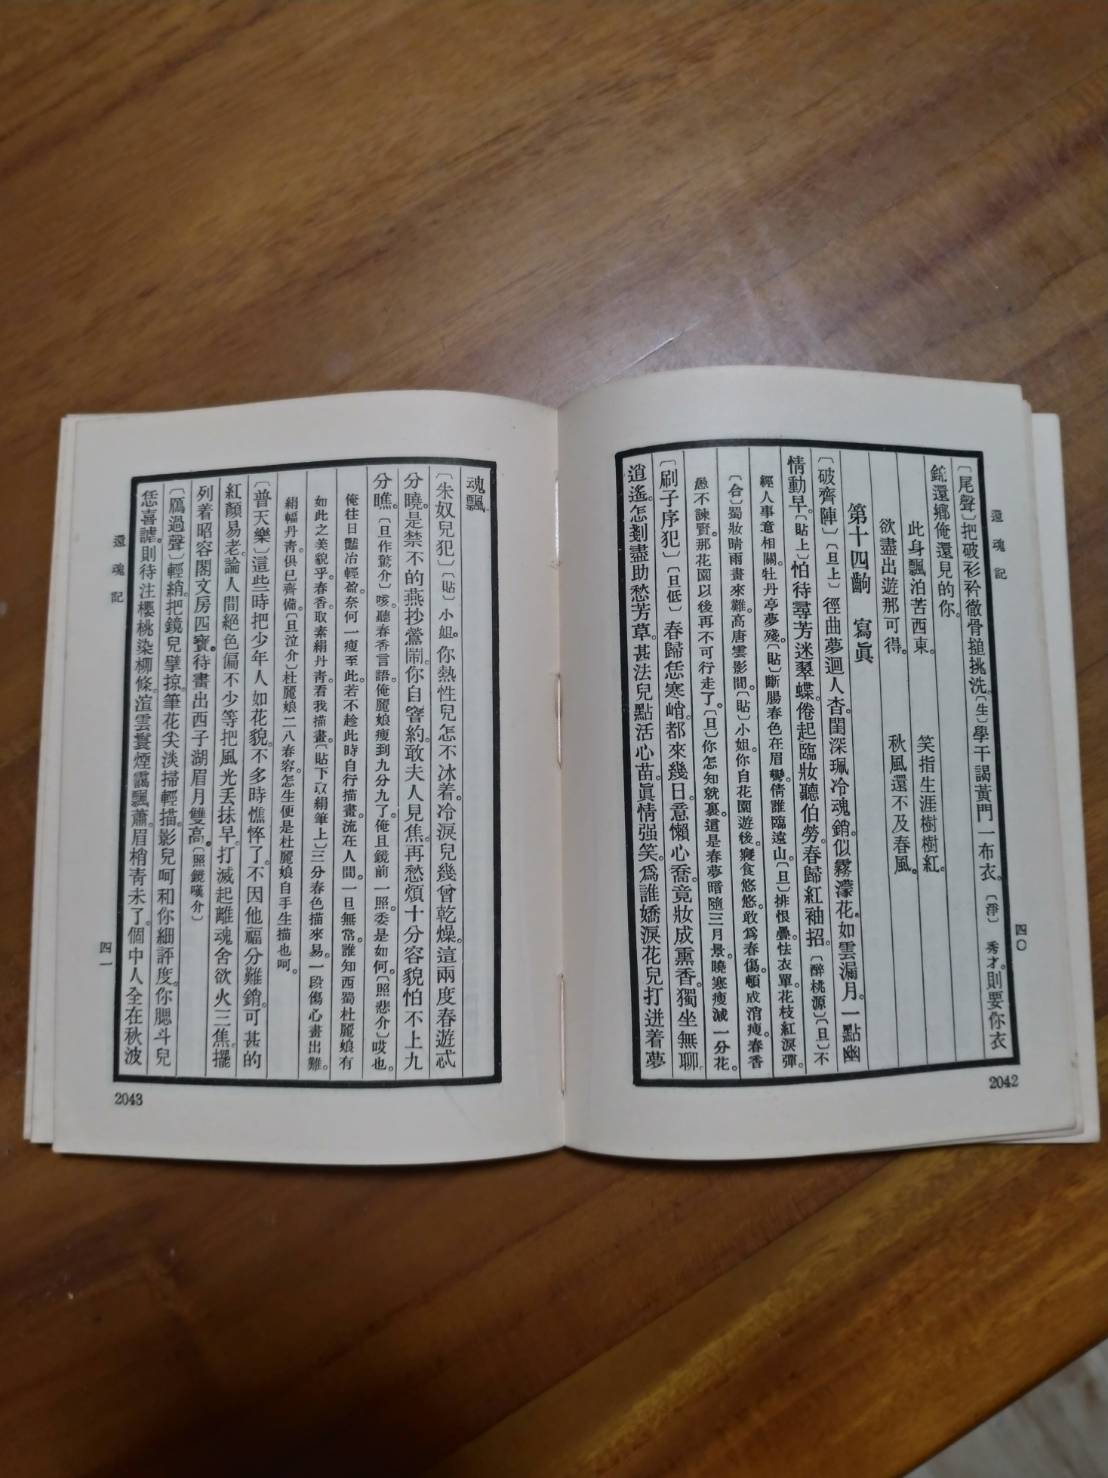 還魂記
四〇
〔尾聲〕把破衫衿徹骨搥挑洗。〔生〕學干謁黃門一布衣。〔淨〕秀才。則要你衣
錦還鄉俺還見的你。
此身飄泊苦西東。 笑指生涯樹樹紅。
欲盡出遊那可得。 秋風還不及春風。
第十四齣 寫眞
〔破齊陣〕〔旦上〕徑曲夢迴人杳。閨深珮冷魂銷。似霧濛花。如雲漏月。一點幽
情動早。〔貼上〕怕待尋芳迷翠蝶。倦起臨妝聽伯勞。春歸紅袖招。〔醉桃源〕〔旦〕不
經人事意相關。牡丹亭夢殘。〔貼〕斷腸春色在眉彎。倩誰臨遠山。〔旦〕排恨疊。怯衣單。花枝紅淚彈。
〔合〕蜀妝晴雨畫來難。高唐雲影間。〔貼〕小姐。你自花園遊後。寢食悠悠。敢爲春傷。頓成消瘦。春香
愚不諫賢。那花園以後再不可行走了。〔旦〕你怎知就裏。這是春夢暗隨三月景。曉寒瘦減一分花。
〔刷子序犯〕〔旦低〕春歸恁寒峭。都來幾日。意懶心喬。竟妝成熏香獨坐無聊。
逍遙。怎剗盡助愁芳草。甚法兒點活心苗。眞情强笑。爲誰嬌。淚花兒打迸着夢
2042
還魂記
四一
魂飄。
〔朱奴兒犯〕〔貼〕小姐。你熱性兒怎不冰着。冷淚兒幾曾乾燥。這兩度春遊忒
分曉。是禁不的燕抄鶯鬧。你自窨約。敢夫人見焦。再愁煩十分容貌怕不上九
分瞧。〔旦作驚介〕咳。聽春香言語。俺麗娘瘦到九分九了。俺且鏡前一照。委是如何。〔照悲介〕哎也。
俺往日豔冶輕盈。奈何一瘦至此。若不趁此時自行描畫。流在人間。一旦無常。誰知西蜀杜麗娘有
如此之美貌乎。春香。取素絹丹靑。看我描畫。〔貼下取絹筆上〕三分春色描來易。一段傷心畫出難。
絹幅丹靑。俱已齊備。〔旦泣介〕杜麗娘二八春容。怎生便是杜麗娘自手生描也呵。
〔普天樂〕這些時把少年人如花貌。不多時憔悴了。不因他福分難銷。可甚的
紅顏易老。論人間絕色偏不少。等把風光丟抹早。打滅起離魂舍欲火三焦。擺
列着昭容閣文房四寶。待畫出西子湖眉月雙高。〔照鏡嘆介〕
〔鴈過聲〕輕綃。把鏡兒擘掠。筆花尖淡掃輕描。影兒呵。和你細評度。你腮斗兒
恁喜謔。則待注櫻桃染柳條。渲雲鬟煙靄飄蕭。眉梢靑未了。個中人全在秋波
2043